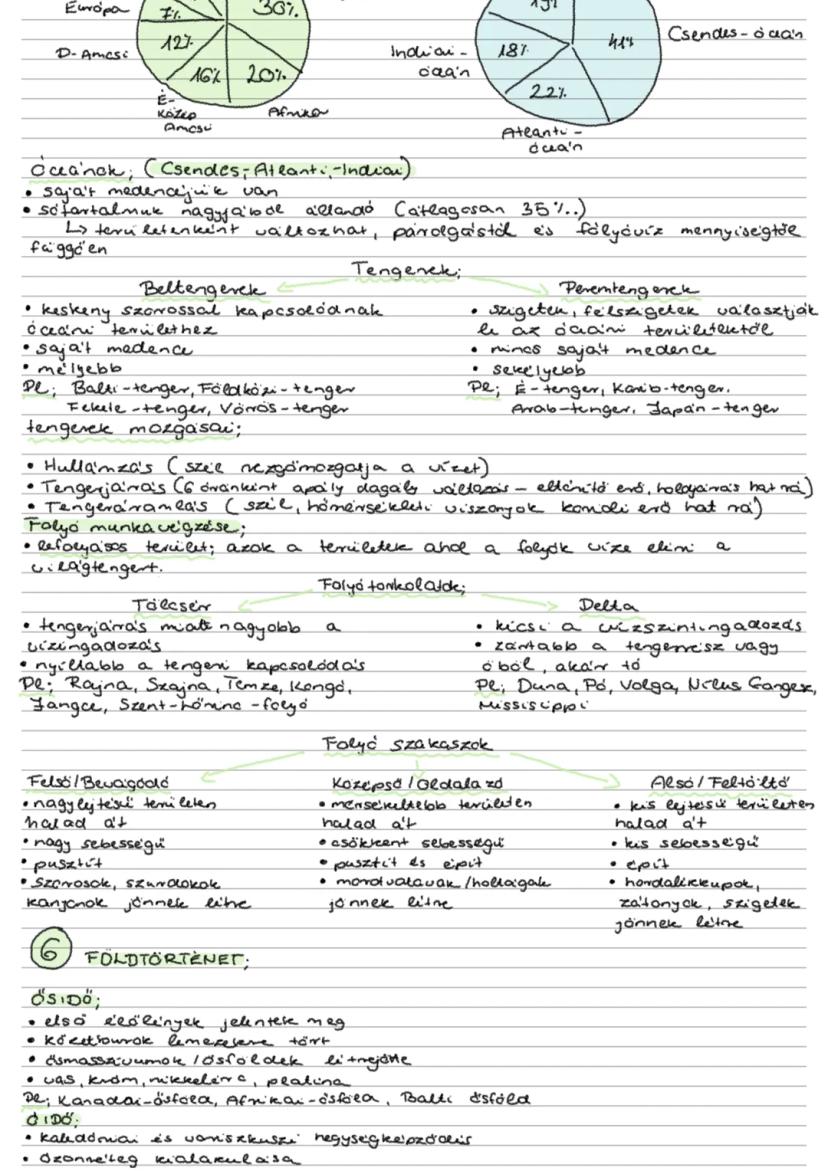 Európa
7%
30%
12%
D-Amcsi
16%
20%
É-
Közép
Amcsi
Afrika
19%
41%
Csendes-óceán
Indiai-
óceán
18%
22%
Atlanti-
óceán
Óceánok; (Csendes-, Atlanti-, Indiai)
• saját medencéjük van
• sófartalmuk nagyjából állandó (átlagosan 35%.)
↳ területenként változhat, párolgástól és folyóvíz mennyiségtől
függően
Tengerek;
Beltengerek
• keskeny szorossal kapcsolódnak
óceáni területhez
• saját medence
• mélyebb
Pl; Balti-tenger, Földközi-tenger
Fekete-tenger, Vörös-tenger
Peremtengerek
• szigetek, félszigetek választják
le az óceáni területektől
• nincs saját medence
• sekélyebb
Pl; É-tenger, Karib-tenger.
Arab-tenger, Japán-tenger
tengerek mozgásai;
• Hullámzás (szél rezgőmozgatja a vizet)
• Tengerjárás (6 óránként apály dagály változás - eltérítő erő, holdjárás hat rá)
• Tengeráramlás (szél, hőmérsékleti viszonyok korioli erő hat rá)
Folyó munkavégzése;
• lefolyásos terület; azok a területek ahol a folyók vize eléri a
világtengert.
Folyótorkolatok;
Tölcsér
• tengerjárás miatt nagyobb a
vízingadozás
• nyíltabb a tengeri kapcsolódás
Pl; Rajna, Szajna, Temze, Kongó,
Jangce, Szent-Lőrinc-folyó
Delta
• kicsi a vízszintingadozás
• zártabb a tengerrész vagy
öböl, akár tó
Pl; Duna, Pó, Volga, Nílus Gangesz,
Mississippi
Folyó szakaszok
Felső/Bevágódó
• nagy lejtésű területen
halad át
• nagy sebességű
• pusztít
• szorosok, szurdokok
kanjonok jönnek létre
Középső/Oldalazó
• mérsékeltebb területen
halad át
• csökkent sebességű
• pusztít és épít
• mordvalávak/holtágak
jönnek létre
Alsó/Feltöltő
• kis lejtésű területen
halad át
• kis sebességű
• épít
• hordalékkupok,
zátonyok, szigetek
jönnek létre
6 FÖLDTÖRTÉNET;
ŐSIDŐ;
• első élőlények jelentek meg
• kőzetburok lemezekre tört
• ősmasszívumok/ősföldek létrejötte
• vas, króm, nikkelérc, platina
Pl; Kanadai-ősföld, Afrikai-ősföld, Balti ősföld
ÓIDŐ;
• kaledóniai és variszkuszi hegységképződés
• ózonréteg kialakulása